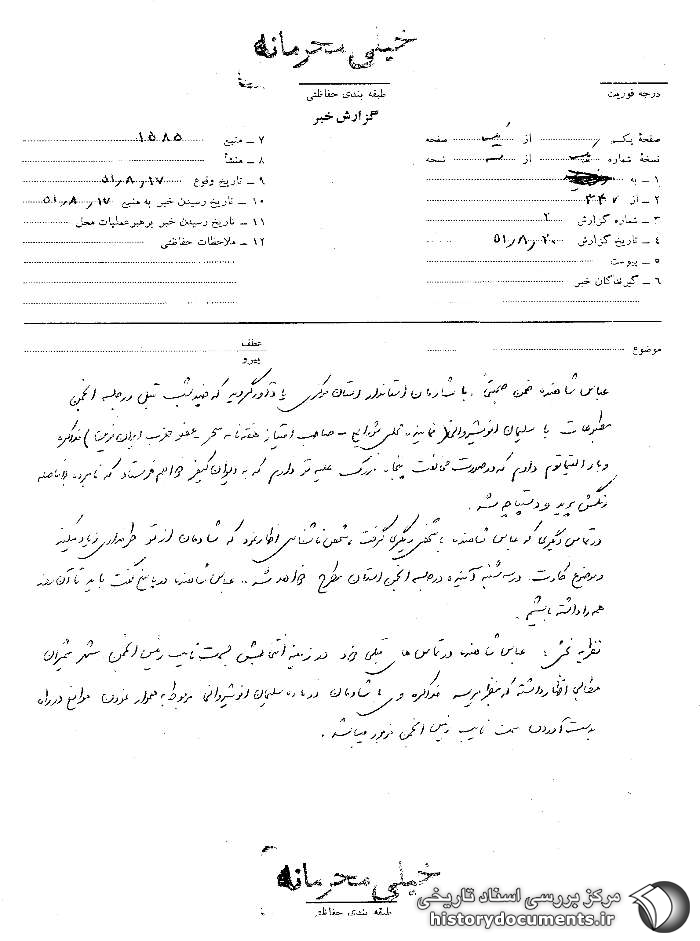 خیلی محرمانه
درجه فوریت
طبقه بندی حفاظتی
گزارش خبر
صفحهٔ یک از یک صفحه
نسخهٔ شماره از نسخه
۱ – به
۲ – از ۳۴۷
۳ – شماره گزارش
۴ – تاریخ گزارش ۵۱٫۸٫۲۰
۵ – پیوست
۶ – گیرندگان خبر
۷ – منبع ۱۵۸۵
۸ – منشأ
۹ – تاریخ وقوع ۵۱٫۸٫۱۷
۱۰ – تاریخ رسیدن خبر به منبع ۵۱٫۸٫۱۷
۱۱ – تاریخ رسیدن خبر برهبر عملیات محل
۱۲ – ملاحظات حفاظتی
موضوع
عطف
پیرو
عباس شاهنده ضمن صحبتی با شادمان استاندار استان مرکزی یادآور گردید که چند شب قبل در جلسه انجمن
مطبوعات با سلیمان انوشیروانی (نماینده کلیمی – صاحب امتیاز هفته نامه سحر – عضو حزب ایران نوین) مذاکره
و باو التیماتوم دادم که در صورت مخالفت پنجاه مدرک علیه تو دارم که به دیوان کیفر خواهم فرستاد که نامبرده بلافاصله
رنگش پرید و دستپاچه شد.
در تماس دیگری که عباس شاهنده با شخص دیگری گرفت، شخص ناشناس اظهار نمود که شادمان از تو طرفداری زیاد میکند
و موضوع کارت در سه شنبه آینده در جلسه انجمن استان مطرح خواهد شد. عباس شاهنده در پاسخ گفت باید تا آن روز
همه را داشته باشیم.
نظریه : عباس شاهنده در تماس های قبلی خود در زمینه انتخابش بسمت نایب رئیس انجمن شهر شمیران
مطالبی اظهار داشته که بنظر میرسد مذاکره وی با شادمان درباره سلیمان انوشیروانی مربوط به هموار نمودن موانع در راه
بدست آوردن سمت نایب رئیس انجمن مزبور میباشد.
خیلی محرمانه
طبقه بندی حفاظتی
مرکز بررسی اسناد تاریخی
historydocuments.ir